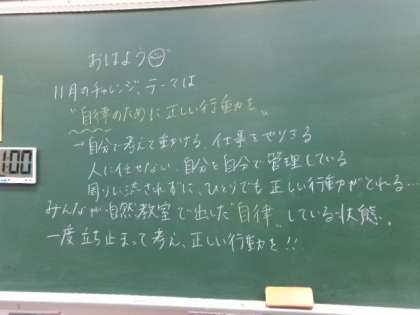 おはよう
11月のチャレンジ、テーマは
"自律のために正しい行動を"
→自分で考えて動ける、仕事をやりきる
人に任せない、自分を自分で管理している
周りに流されずに、ひとりでも正しい行動がとれる…
みんなが自然教室で出した"自律"している状態。
一度立ち止まって考え、正しい行動を!!
100